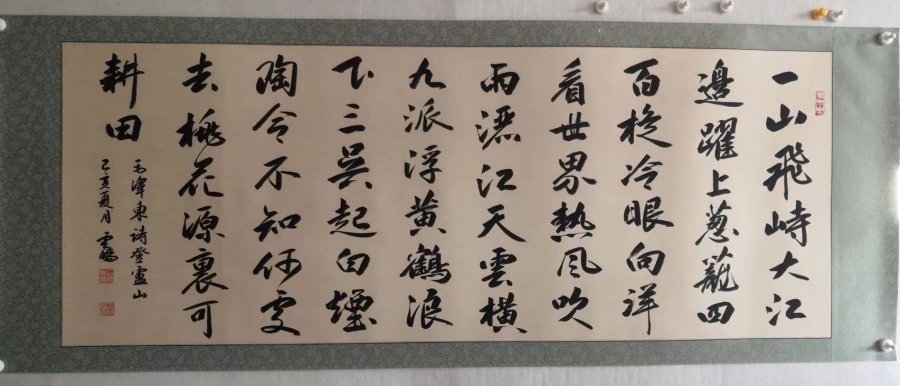 一山飛峙大江
邊躍上葱蘢四
百旋冷眼向洋
看世界熱風吹
雨灑江天雲橫
九派浮黄鶴浪
下三吳起白煙
陶令不知何處
去桃花源裏可
耕田
毛澤東詩登廬山
己亥夏月